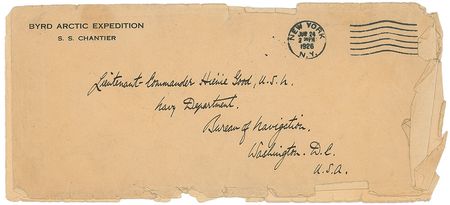 BYRD ARCTIC EXPEDITION
S. S. CHANTIER
NEW YORK
JUN 24
PM
1926
N.Y.
Lieutenant-Commander Good, U.S.N.
Navy Department.
Bureau of Navigation.
Washington. D.C.
U.S.A.